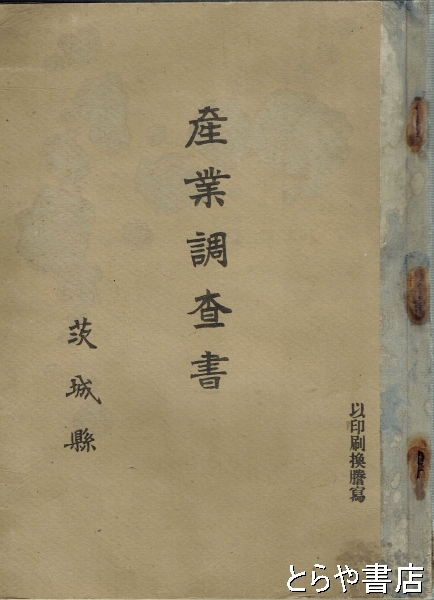 以印刷換謄寫
産業調査書
茨城縣
とらや書店